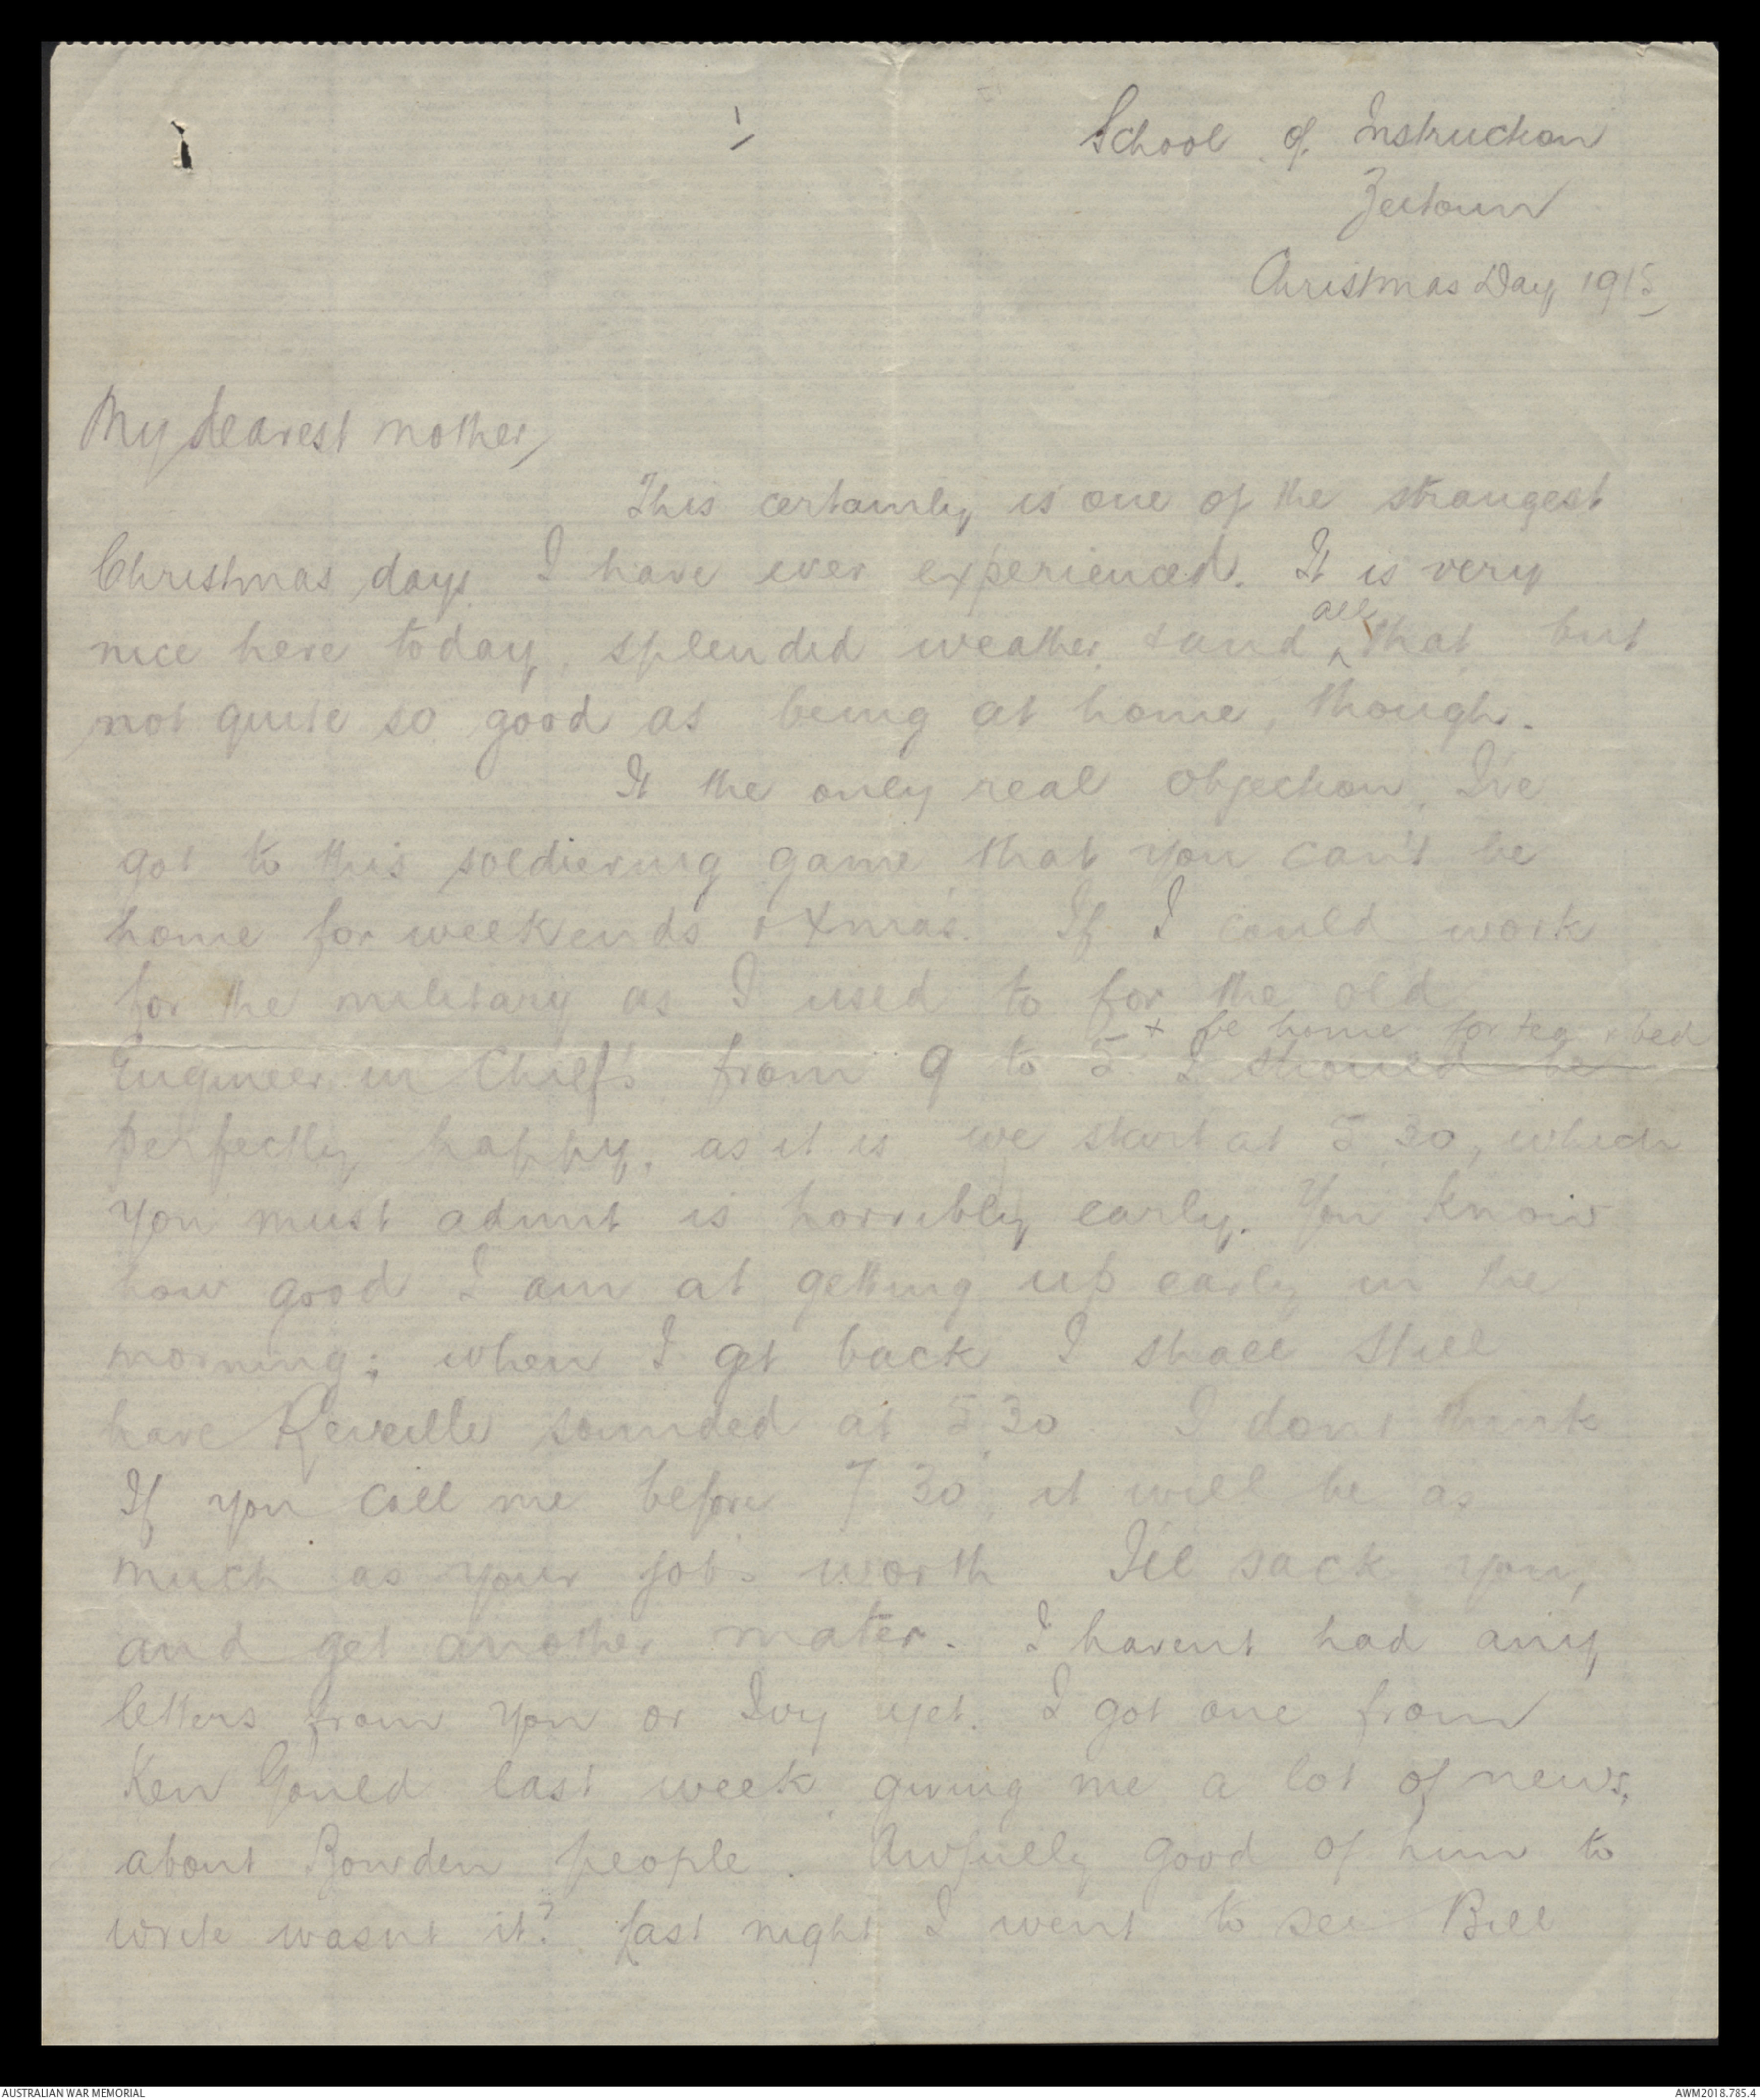 1/
School of Instruction
Zeitoun
Christmas Day 1915
My dearest mother,
This certainly is one of the strangest
Christmas days I have ever experienced. It is very
nice here today, splendid weather & and all that but
not quite so good as being at home, though.
It the only real objection, I've
got to this soldiering game that you can't be
home for weekends & Xmas. If I could work
for the military as I used to for the old
Engineer in Chief's from 9 to 5 + be home for tea & bed I should be
perfectly happy, as it is we start at 5.30, which
you must admit is horribly early. You know
how good I am at getting up early in the
morning; when I get back I shall still
have Reveille sounded at 5.30. I don't think
If you call me before 7 30, it will be as
much as your job's worth I'll sack you,
and get another mater. I havent had any
letters from you or Ivy yet. I got one from
Ken Gould last week giving me a lot of news,
about Bowden people. Awfully good of him to
write wasnt it? Last night I went to see Bill
AUSTRALIAN WAR MEMORIAL
AWM2018.785.4